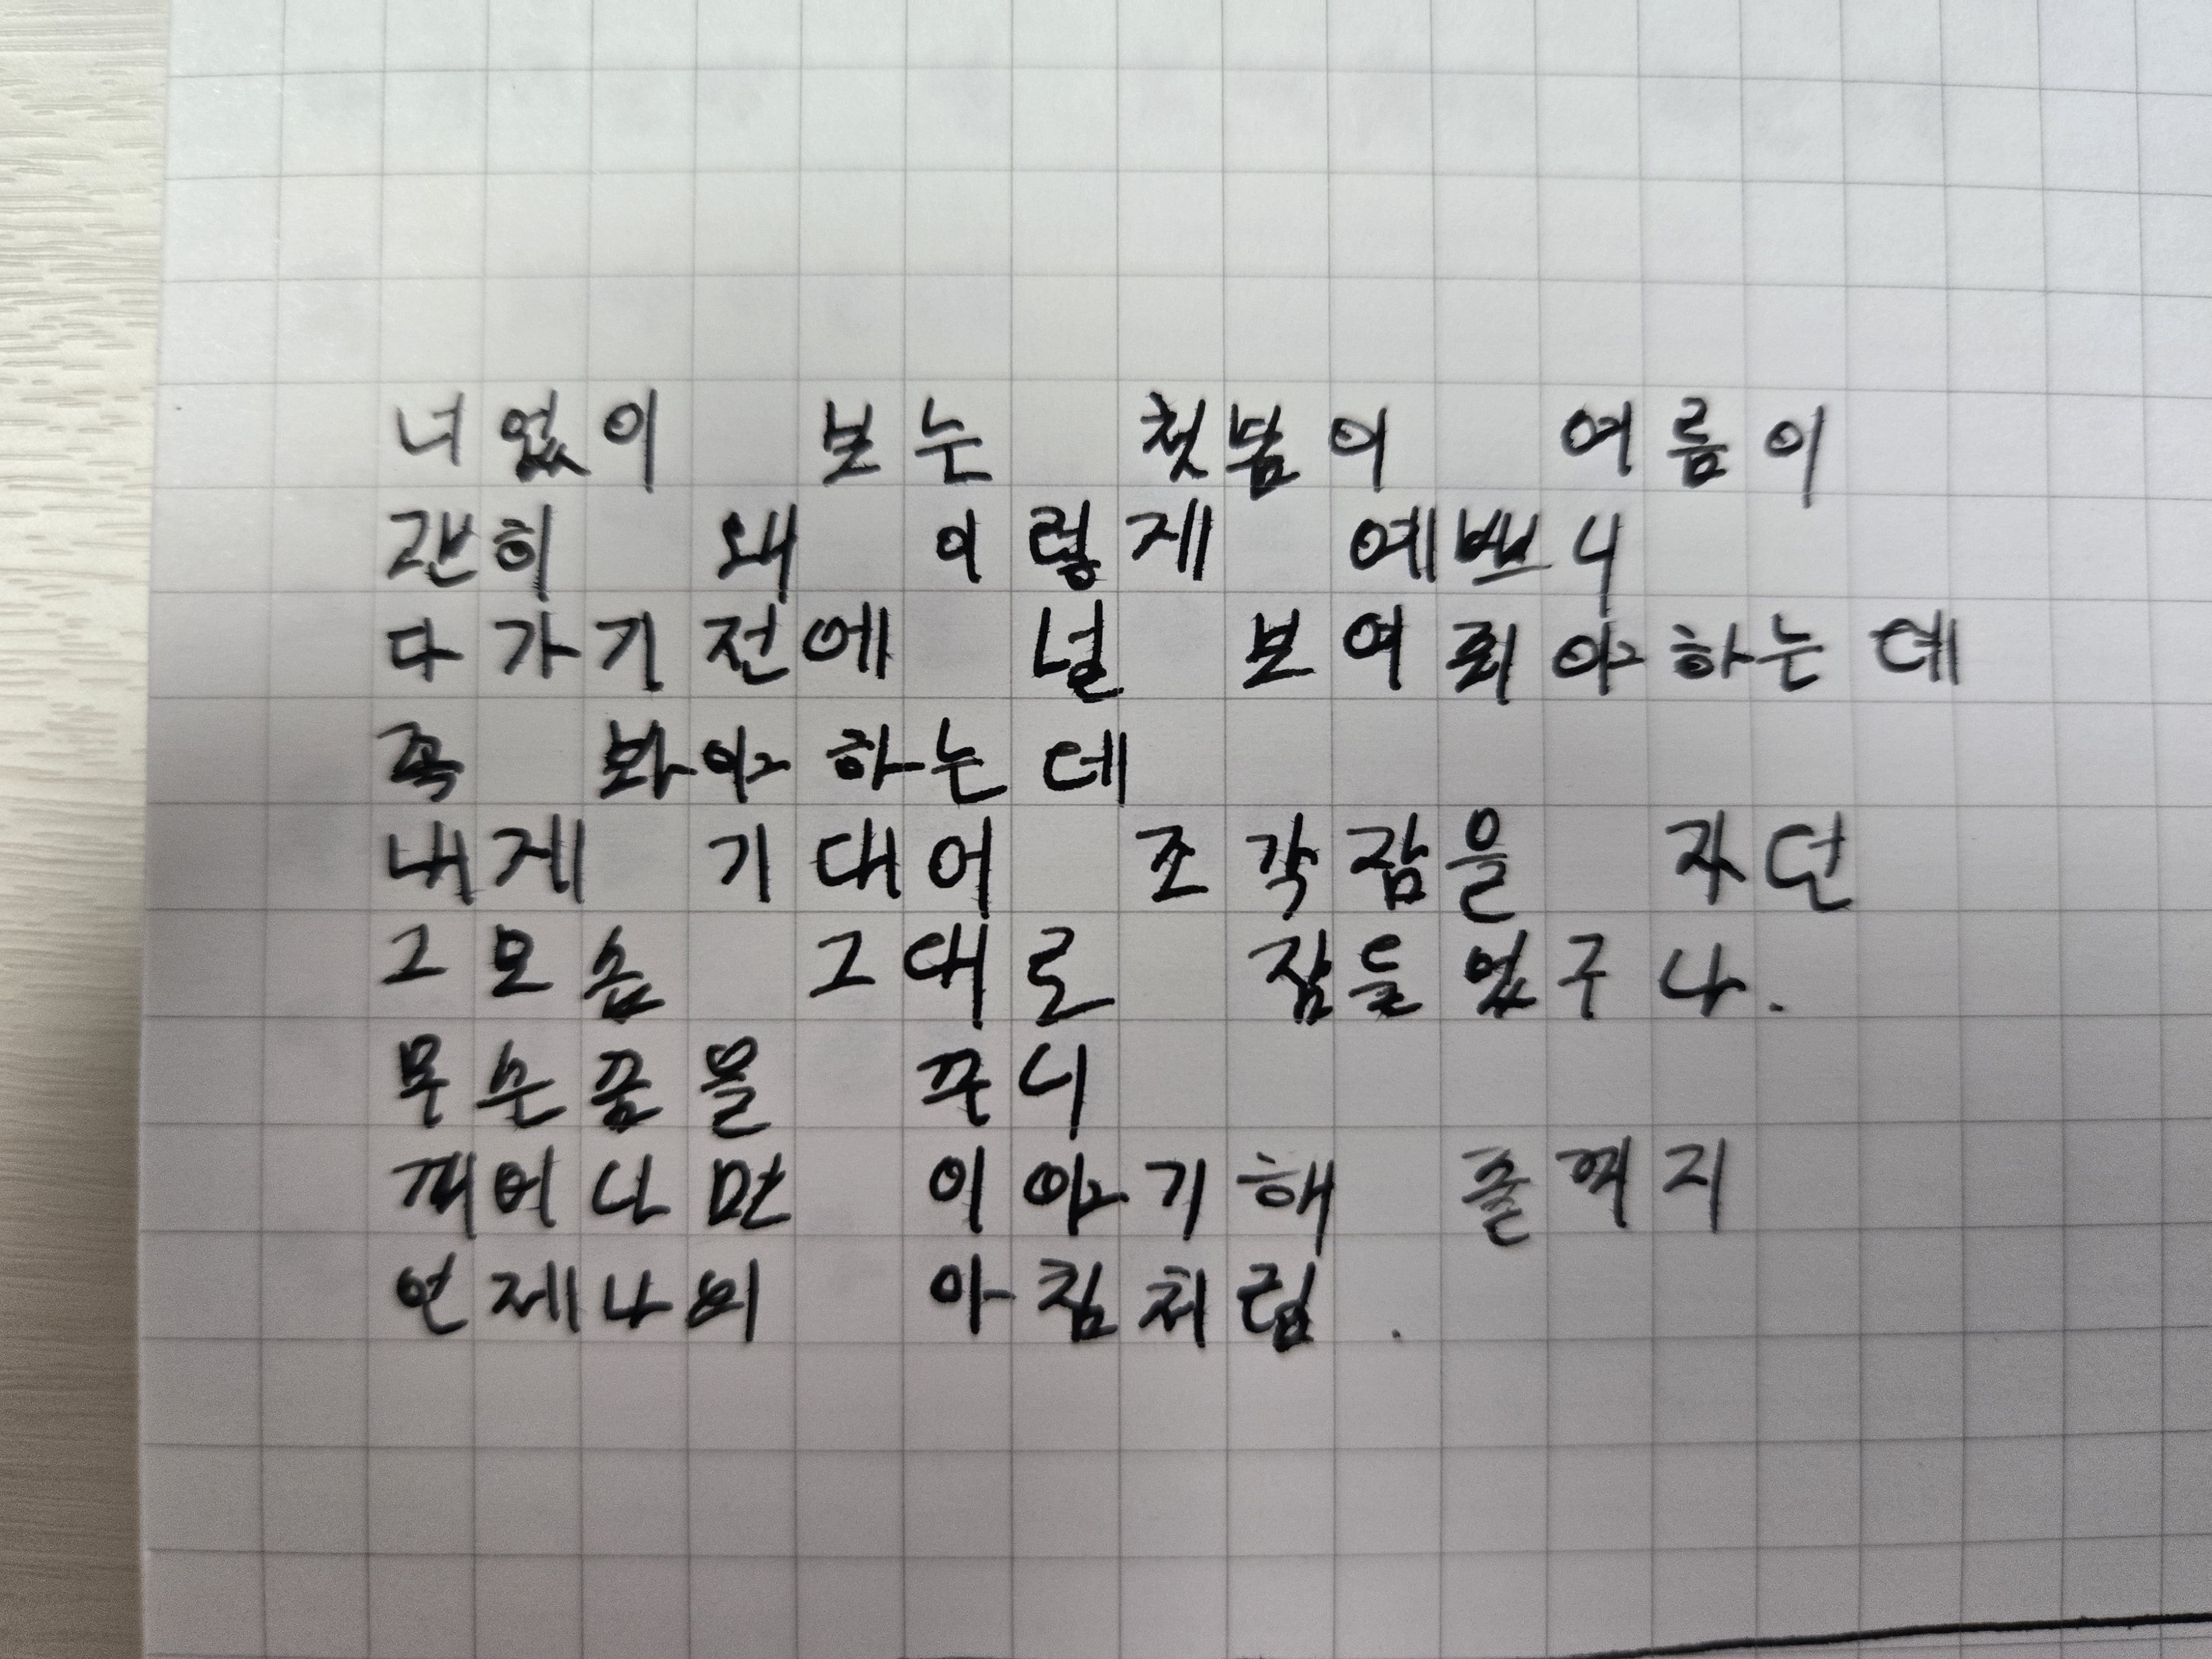 너없이 보는 첫봄이 여름이
괜히 왜 이렇게 예쁘니
다 가기전에 널 보여줘야하는데
꼭 봐야하는데
내게 기대어 조각잠을 자던
그모습 그대로 잠들었구나.
무슨꿈을 꾸니
깨어나면 이야기해 줄꺼지
언제나의 아침처럼.